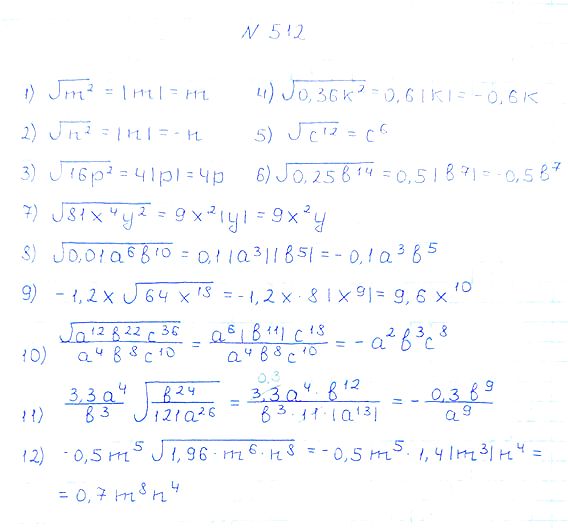 N 512
1) √m² = |m| = m 4) √0,36k² = 0,6|k| = -0,6k
2) √n² = |n| = -n 5) √c¹² = c⁶
3) √16p² = 4|p| = 4p 6) √0,25b¹⁴ = 0,5|b⁷| = -0,5b⁷
7) √81x⁴y² = 9x²|y| = 9x²y
8) √0,01a⁶b¹⁰ = 0,1|a³||b⁵| = -0,1a³b⁵
9) -1,2x √64x¹⁸ = -1,2x · 8|x⁹| = 9,6x¹⁰
10) √a¹²b²²c³⁶ / a⁴b⁸c¹⁰ = a⁶|b¹¹|c¹⁸ / a⁴b⁸c¹⁰ = -a²b³c⁸
0,3
11) 3,3a⁴ / b³ √b²⁴ / 121a²⁶ = 3,3a⁴ · b¹² / b³ · 11 · |a¹³| = - 0,3b⁹ / a⁹
12) -0,5m⁵ √1,96 · m⁶ · n⁸ = -0,5m⁵ · 1,4|m³|n⁴ =
= 0,7m⁸n⁴